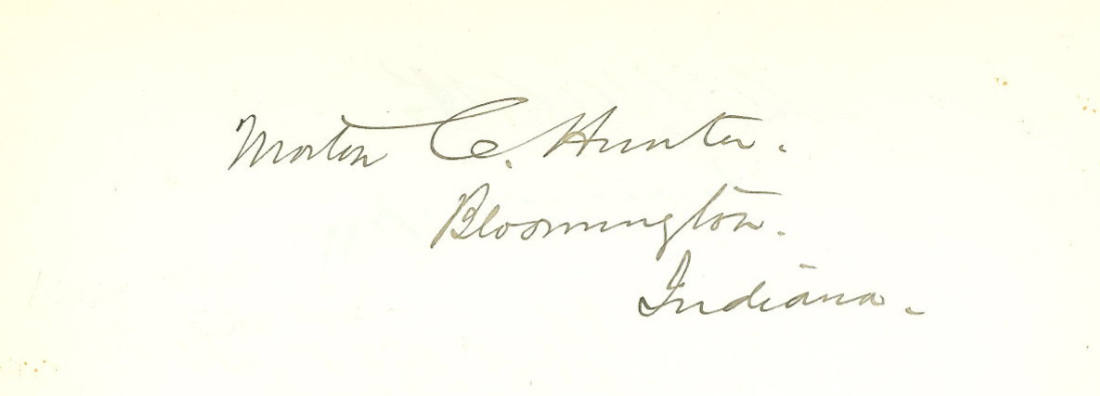 Morton C. Hunter.
Bloomington.
Indiana.